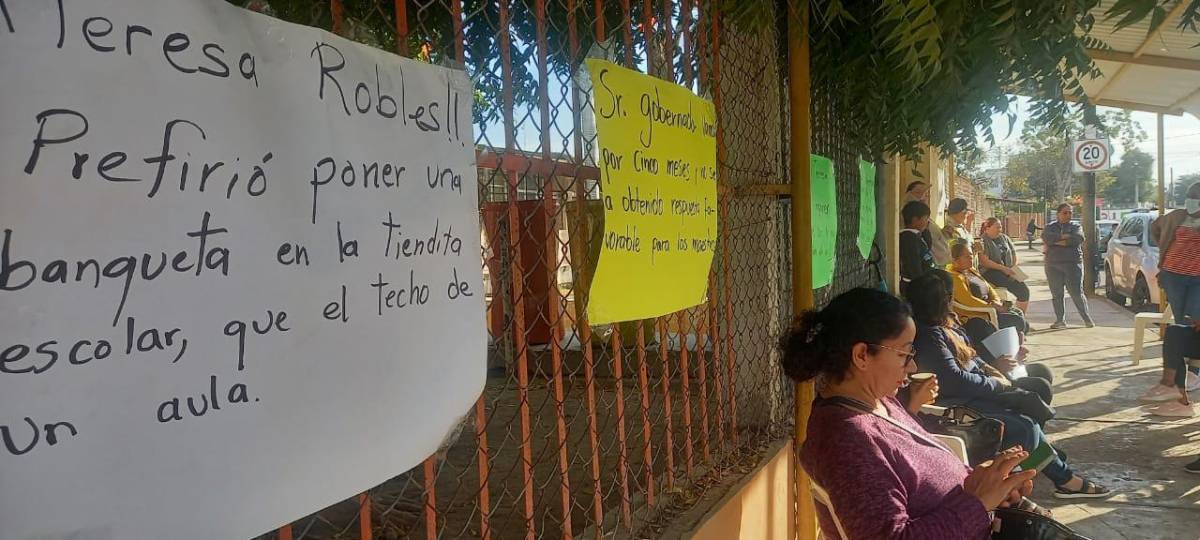 Teresa Robles!!
Prefirió poner una
banqueta en la tiendita
escolar, que el techo de
un aula.
Sr. gobernado
por cinco meses y no se
a obtenido respuesta fa-
vorable para los maestro
20